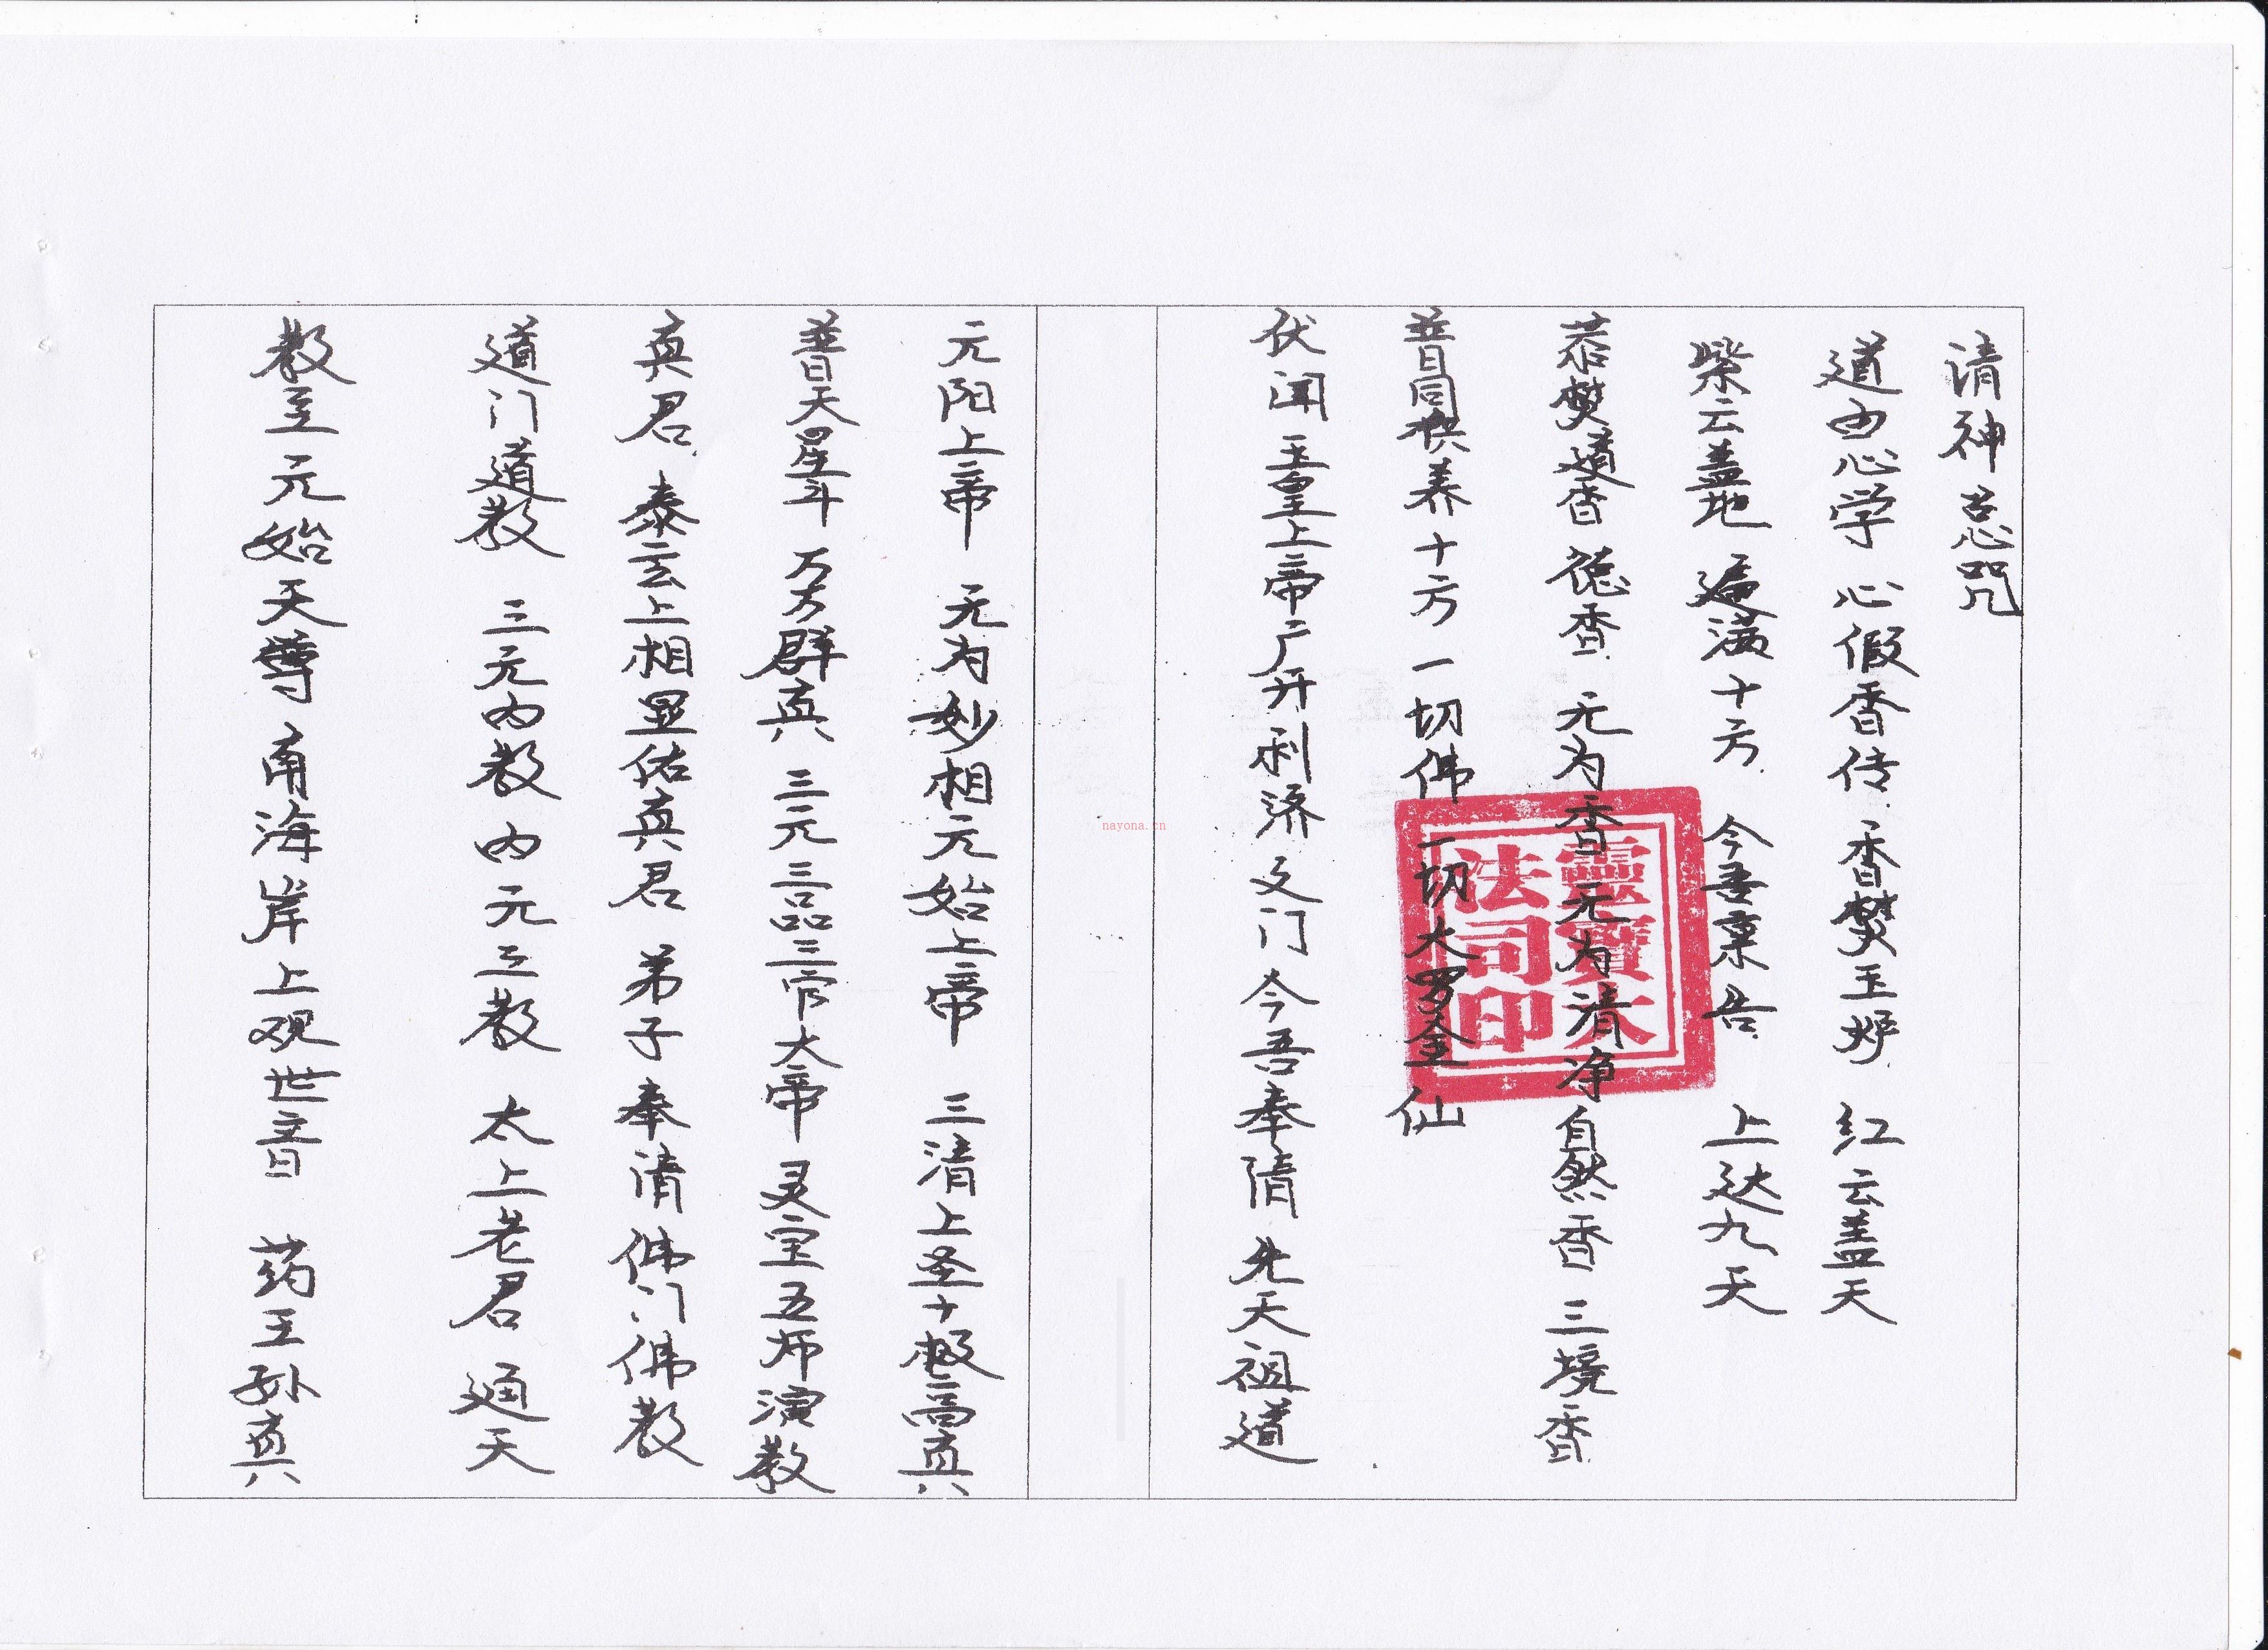 清神总咒
道由心学 心假香传 香焚玉炉 红云盖天
紫云盖地 遍满十方 今吾禀告 上达九天
恭焚道香 德香 无为香 无为清净自然香 三境香
普同供养十方一切佛 一切大罗金仙
伏闻 玉皇上帝广开利济之门 今吾奉请 先天祖道
元阳上帝 无为妙相元始上帝 三清上圣十极高真
普天星斗 万万群真 三元三品三官大帝 灵宝五师演教
真君 泰玄上相显佑真君 弟子奉请佛门佛教
道门道教 三元内教 内元三教 太上老君 通天
教主 元始天尊 南海岸上观世音 药王孙真
靈寶大
法司印
nayona.cn